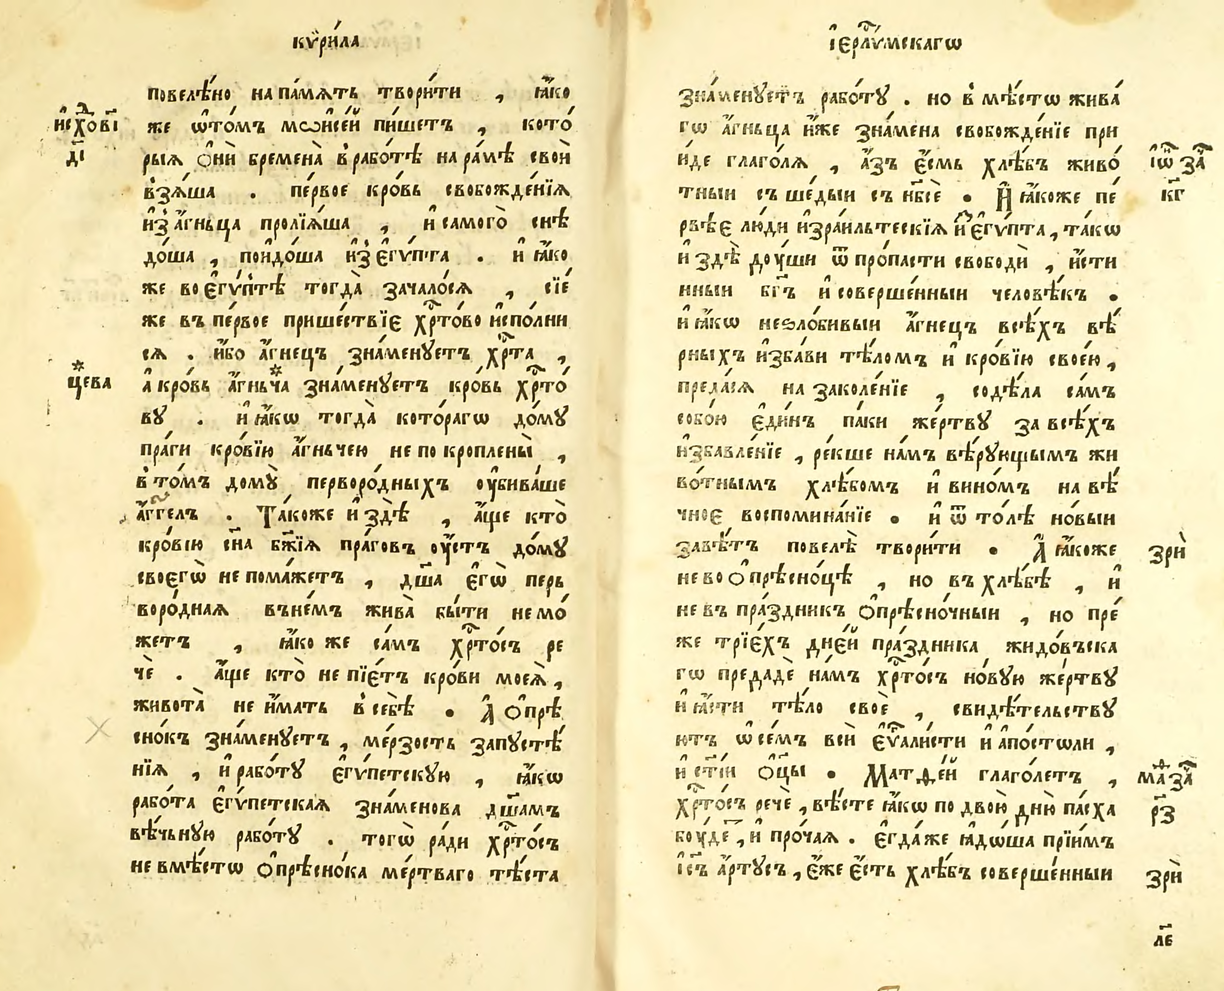 кѵ́рила
повелѣ́но на па́мѧть твори́ти , ꙗ҆́ко
исхо҆ ві
же ѡ҆то́мъ мѡѵсе́й пи́шетъ , кото́
ді
рыѧ ѻ҆нѝ бременà в̾рабо́тѣ на ра́мѣ своѝ
в̾зѧ́ша . пе́рвое кро́вь свобожде́нїѧ
и҆з̾ а҆́гньца пролїѧ́ша , и҆ самого̀ снѣ
до́ша , поидо́ша и҆з̾ є҆гѵ́пта . и҆ ꙗ҆́ко
же во є҆гѵ́птѣ тогда̀ зачало́сѧ , сїѐ
же въ пе́рвое прише́ствїє хр҃то́во и҆спо́лни
сѧ . и҆́бо а҆́гнецъ зна́менуетъ хр҃та̀ ,
цева
а҆ кро́вь а҆́гньча зна́менуетъ кро́вь хр҃то́
ву . и҆ ꙗ҆́кѡ тогда̀ кото́рагѡ до́му
пра́ги кро́вїю а҆́гньчею не покропленѝ ,
в̾ то́мъ дому̀ перворо́дныхъ ᲂу҆бива́ше
а҆́ггелъ . Та́коже и҆ здѣ̀ , а҆́ще кто̀
кро́вїю сн҃а бж҃їѧ пра́говъ ᲂу҆́стъ до́му
своєгѡ̀ не пома́жетъ , дш҃а є҆гѡ̀ перь
воро́днаѧ въ не́мъ жива̀ бы́ти не мо́
жетъ , ꙗ҆́ко же са́мъ хр҃то́съ ре
чѐ . а҆́ще кто̀ не пїе́тъ кро́ви моеѧ̀ ,
живота̀ не и҆́мать в̾ себѣ̀ . А҆ ѻ҆прѣ
сно́къ зна́менуетъ , ме́рзость запꙋстѣ́
нїѧ , и҆ рабо́ту є҆гѵ́петскую , ꙗ҆́кѡ
рабо́та є҆гѵ́петскаѧ зна́менова дш҃амъ
вѣ́чьную рабо́ту . тогѡ̀ ра́ди хр҃то́съ
не вмѣ́стѡ ѻ҆прѣсно́ка ме́ртваго тѣ́ста
і҆ер҃лѵ́мскагѡ
зна́менуетъ рабо́ту . но в̾ мѣ́стѡ жива́
гѡ а҆́гньца и҆́же зна́мена свобожде́нїе при
и́де глаго́лѧ , а҆́зъ є҆́смь хлѣ́бъ живо́
і҆ѡ҃ за҃
тныи съше́дыи съ нб҃сѐ . И҆ ꙗ҆́коже пе́
к҃г
рвѣє лю́ди и҆зра́ильтескїѧ и҆з є҆гѵ́пта , та́кѡ
и҆ здѣ̀ доу́ши ѿ про́пасти свободѝ , и҆́сти
нныи бг҃ъ и҆ соверше́нныи человѣ́къ .
и҆ ꙗ҆́кѡ незло́бивыи а҆́гнецъ всѣ́хъ вѣ́
рныхъ и҆зба́ви тѣ́ломъ и҆ кро́вїю свое́ю ,
преда́сѧ на заколе́нїе , содѣ́ла са́мъ
собо́ю є҆ди́нъ па́ки же́ртву за всѣ́хъ
и҆збавле́нїе , ре́кше на́мъ вѣ́рующымъ жи
во́тнымъ хлѣ́бомъ и҆ вино́мъ на вѣ́
чноє воспомина́нїе . и҆ ѿ то́лѣ но́выи
завѣ́тъ повелѣ̀ твори́ти . А҆ ꙗ҆́коже
зрѝ
не во ѻ҆прѣсно́цѣ , но въ хлѣ́бѣ , и҆
не въ пра́здникъ ѻ҆прѣсно́чныи , но пре́
же трїе́хъ дне́й пра́здника жидо́въска
гѡ предадѐ на́мъ хр҃то́съ но́вую же́ртву
и҆ ꙗ҆́сти тѣ́ло своѐ , свидѣ́тельству
ютъ ѡ҆ се́мъ всѝ є҆ѵⷢ҇али́сти и҆ а҆по́столи ,
и҆ ст҃і́и ѻ҆ц҃ы . Матѳе́й глаго́летъ ,
маѳ за҃
хр҃то́съ речѐ , вѣ́сте ꙗ҆́кѡ по двою̀ дню̀ па́сха
р҃з
боу́де , и҆ про́чаѧ . є҆гда́же ꙗ҆дѡ́ша прїи́мъ
і҆с҃ъ а҆́ртусъ , є҆́же є҆́сть хлѣ́бъ соверше́нныи
зрѝ
л҃є